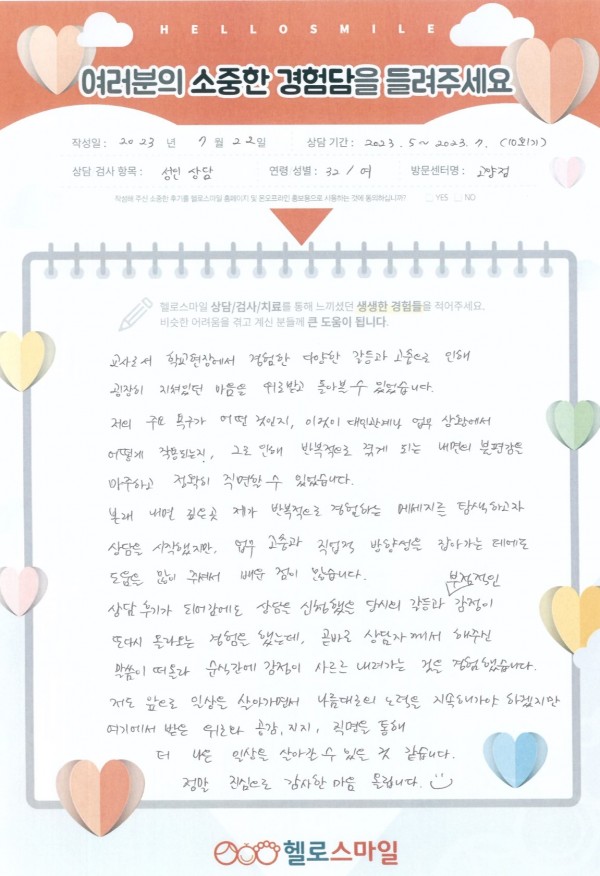 HELLOSMILE
여러분의 소중한 경험담을 들려주세요
작성일 : 2023 년 7 월 22 일 상담 기간 : 2023. 5 ~ 2023. 7. (10회기)
상담 검사 항목 : 성인 상담 연령/성별 : 32 / 여 방문센터명 : 고양점
작성해 주신 소중한 후기를 헬로스마일 홈페이지 및 온오프라인 홍보용으로 사용하는 것에 동의하십니까? YES NO
헬로스마일 상담/검사/치료를 통해 느끼셨던 생생한 경험들을 적어주세요.
비슷한 어려움을 겪고 계신 분들께 큰 도움이 됩니다.
교사로서 학교현장에서 경험한 다양한 갈등과 고충으로 인해
굉장히 지쳐있던 마음을 위로받고 돌아볼 수 있었습니다.
저의 주요 욕구가 어떤 것인지, 이것이 대인관계나 업무 상황에서
어떻게 작용되는지, 그로 인해 반복적으로 겪게 되는 내면의 불편감을
마주하고 정확히 직면할 수 있었습니다.
본래 내면 깊은곳 제가 반복적으로 경험하는 메세지를 탐색하고자
상담을 시작했지만, 업무 고충과 직업적 방향성을 잡아가는 데에도
도움을 많이 주셔서 배운 점이 많습니다.
부정적인
상담 후기가 되어감에도 상담을 신청했을 당시의 갈등과 감정이
또다시 올라오는 경험을 했는데, 곧바로 상담자께서 해주신
말씀이 떠올라 순식간에 감정이 사르르 내려가는 것을 경험했습니다.
저도 앞으로 일상을 살아가면서 나름대로의 노력을 지속해가야 하겠지만
여기에서 받은 위로와 공감, 지지, 직면을 통해
더 나은 일상을 살아갈 수 있을 것 같습니다.
정말 진심으로 감사한 마음 올립니다.
헬로스마일